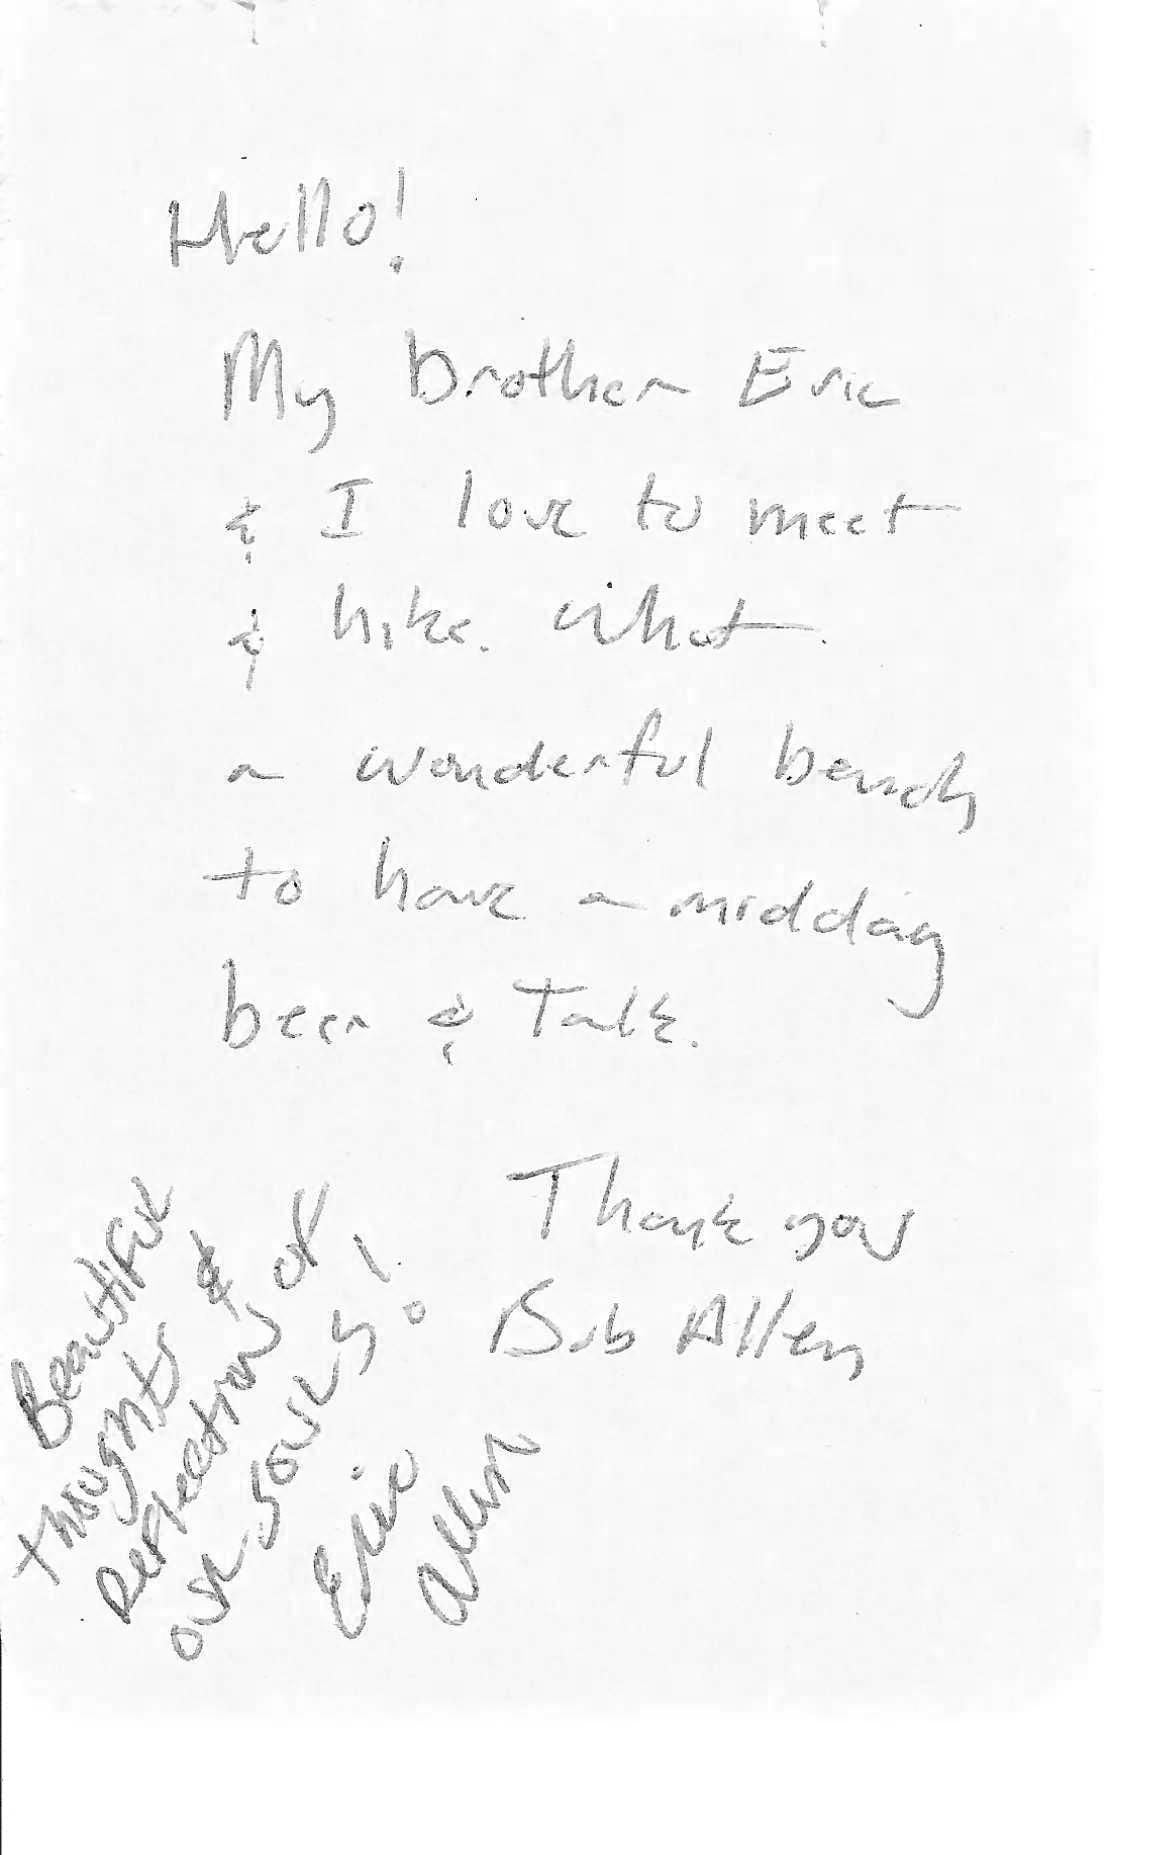 Hello!
My brother Eric
& I love to meet
& hike. What
a wonderful bench
to have a midday
beer & Talk.
Thank you
Bob Allen
Beautiful
thoughts &
Reflections of
our souls!
Eric
Allen